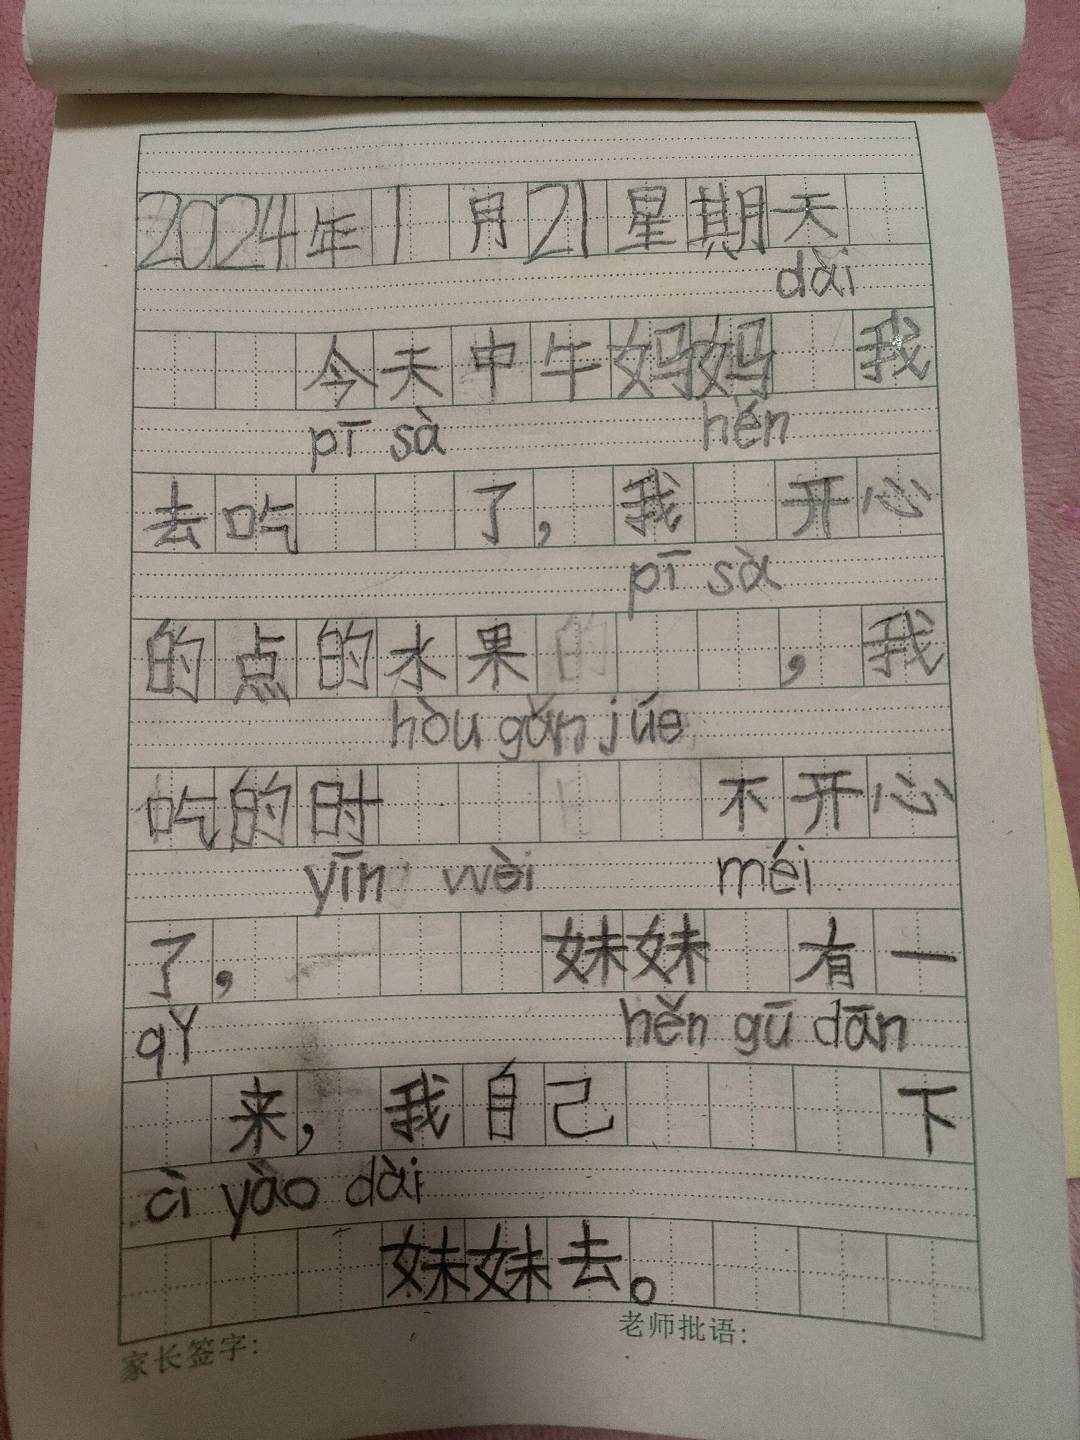 2024年1月21星期天
dài
今天中午妈妈 我
pī sà hěn
去吃 了，我 开心
pī sà
的点的水果的 ，我
hòu gǎn júe
吃的时 不开心
yīn wèi méi
了， 妹妹 有一
qǐ hěn gū dān
来，我自己 下
cì yào dài
妹妹去。
家长签字： 老师批语：